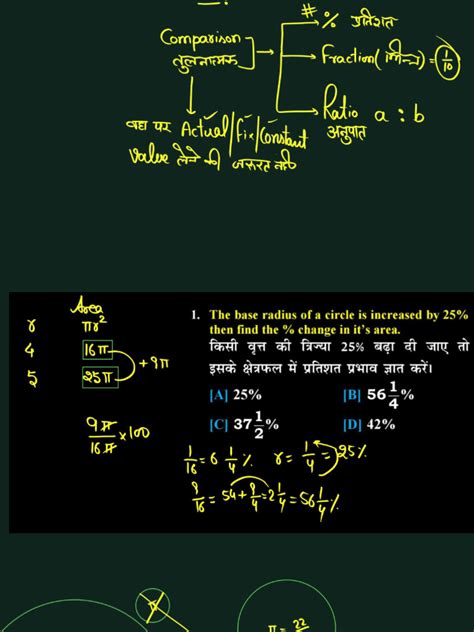 Comparison
तुलनात्मक
# % प्रतिशत
Fraction (भिन्न) = 1/10
Ratio a : b
अनुपात
यहा पर Actual/fix/Constant
Value लेने की जरूरत नही
Area
r πr²
4 16π
5 25π
+ 9π
9π/16π × 100
1. The base radius of a circle is increased by 25%
then find the % change in it's area.
किसी वृत्त की त्रिज्या 25% बढ़ा दी जाए तो
इसके क्षेत्रफल में प्रतिशत प्रभाव ज्ञात करें।
[A] 25% [B] 56 1/4 %
[C] 37 1/2 % [D] 42%
1/16 = 6 1/4 % r = 1/4 = 25%
9/16 = 54 + 9/4 = 2 1/4 = 56 1/4 %
π = 22